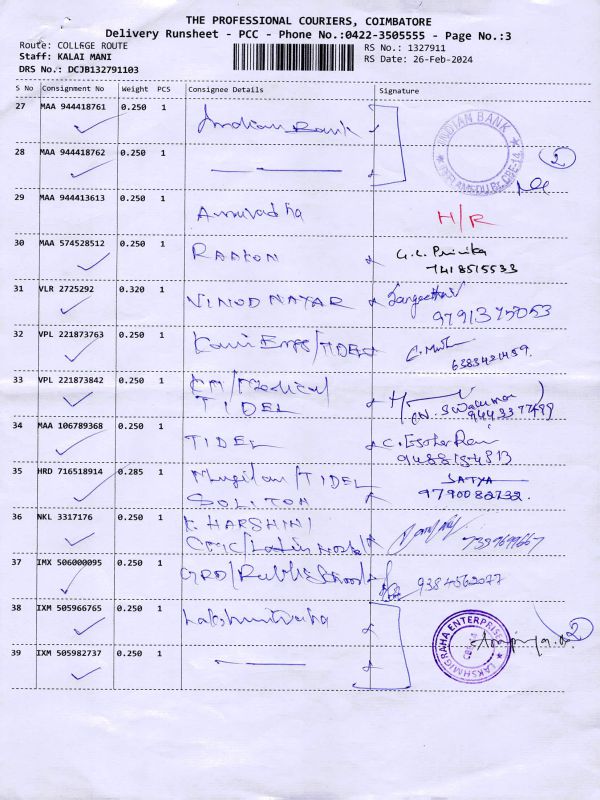 THE PROFESSIONAL COURIERS, COIMBATORE
Delivery Runsheet - PCC - Phone No.:0422-3505555 - Page No.:3
Route: COLLEGE ROUTE
RS No.: 1327911
Staff: KALAI MANI
RS Date: 26-Feb-2024
DRS No.: DCJB132791103
S No Consignment No Weight PCS Consignee Details Signature
27 MAA 944418761 0.250 1 Indian Bank
INDIAN BANK
28 MAA 944418762 0.250 1
2
29 MAA 944413613 0.250 1 Anuradha H/R
30 MAA 574528512 0.250 1
7418515533
31 VLR 2725292 0.320 1 VINOD NAYAR Sangeetha
32 VPL 221873763 0.250 1 /TIDEL
33 VPL 221873842 0.250 1 /Medical
TIDEL
34 MAA 106789368 0.250 1 TIDEL
35 HRD 716518914 0.285 1 /TIDEL SATYA
SOLITON 9790082732
36 NKL 3317176 0.250 1 K HARSHINI
37 IMX 506000095 0.250 1 GRD/Public School 9384562077
38 IXM 505966765 0.250 1
LAKSHMIGRAHA ENTERPRISE
2
39 IXM 505982737 0.250 1